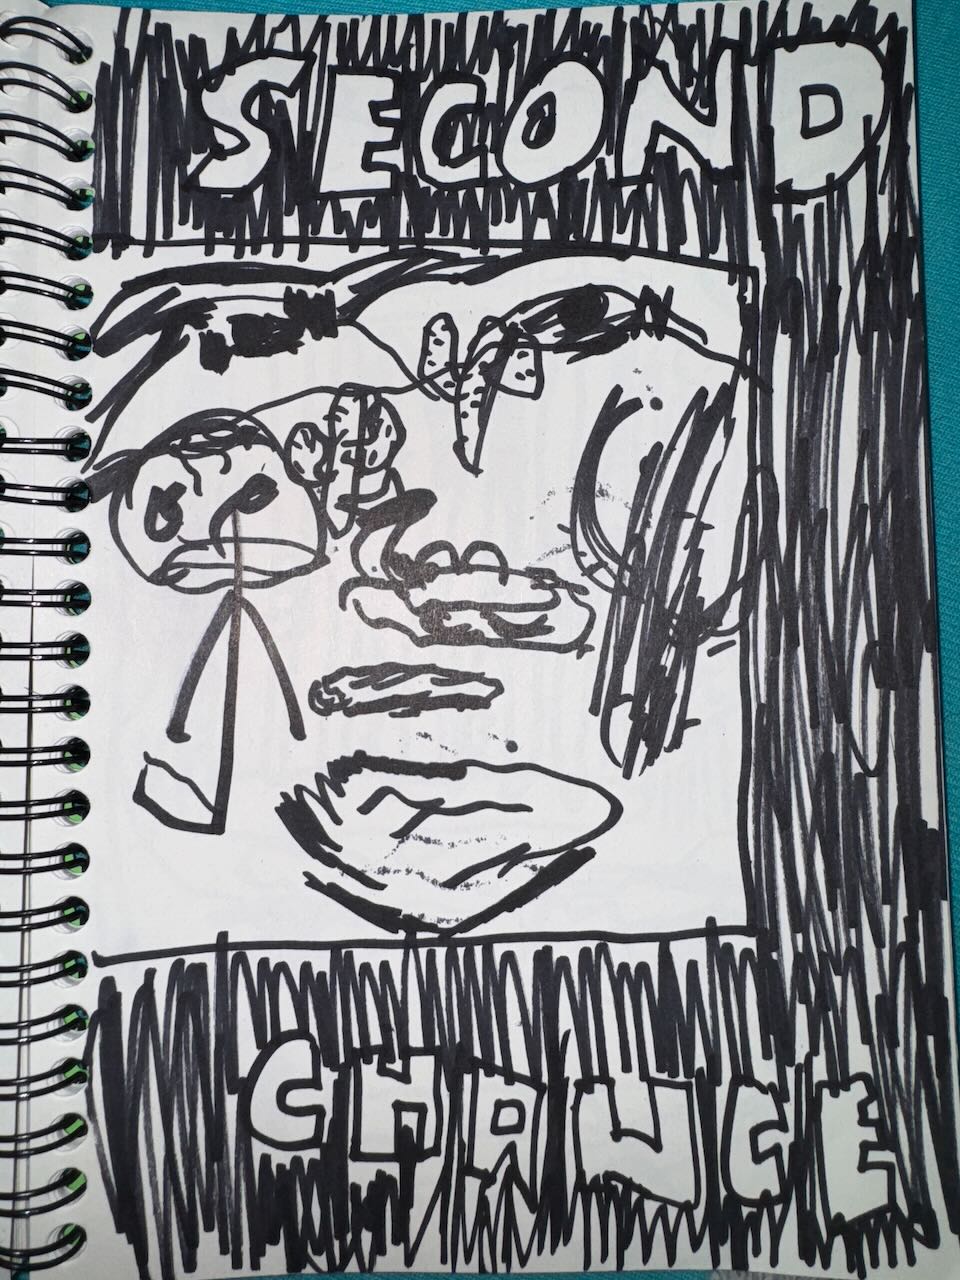 SECOND
CHANCE